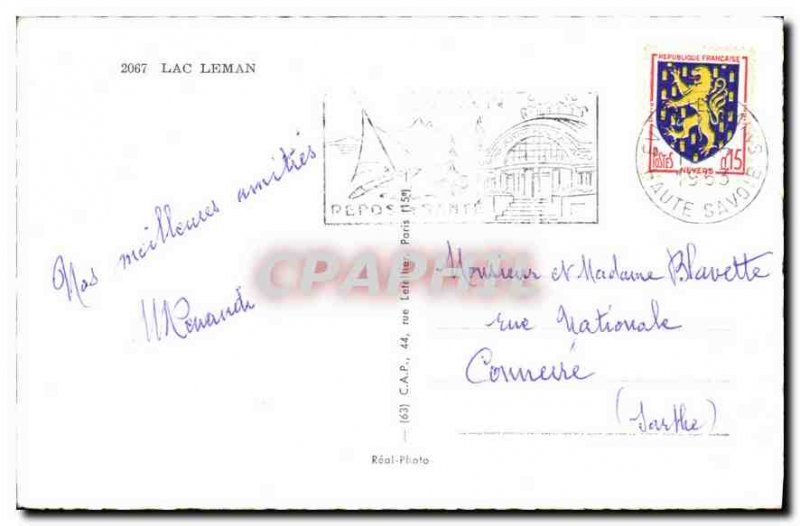 2067 LAC LEMAN
REPUBLIQUE FRANÇAISE
POSTES 0,15
NEVERS
HAUTE SAVOIE
REPOS SANTÉ
Nos meilleures amitiés
CPAPHIL
Monsieur et Madame Blavette
rue Nationale
Connerré
(Sarthe)
(63) C.A.P., 44, rue Letellier, Paris (15e)
Réal-Photo